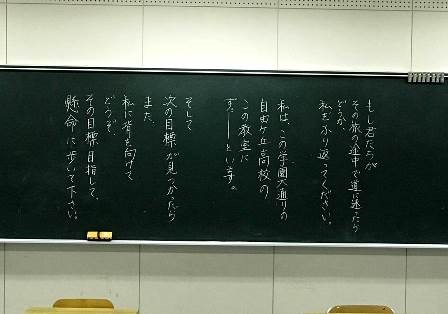 もし君たちが
その旅の途中で道に迷ったら
どうか、
私をふり返ってください。
私は、この学園大通りの
自由ケ丘高校の
この教室に
ずっーーといます。
そして
次の目標が見つかったら
また、
私に背を向けて
どうぞ、
その目標目指して、
懸命に歩いて下さい。